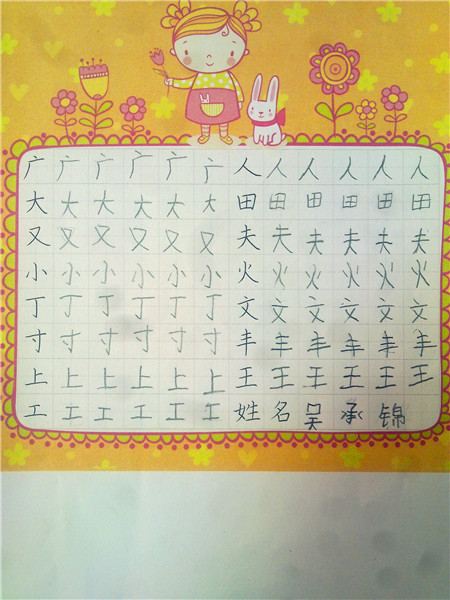 广广广广广广人人人人人人
大大大大大大田田田田田田
又又又又又又夫夫夫夫夫夫
小小小小小小火火火火火火
丁丁丁丁丁丁文文文文文文
寸寸寸寸寸寸丰丰丰丰丰丰
上上上上上上王王王王王王
工工工工工工姓名吴承锦